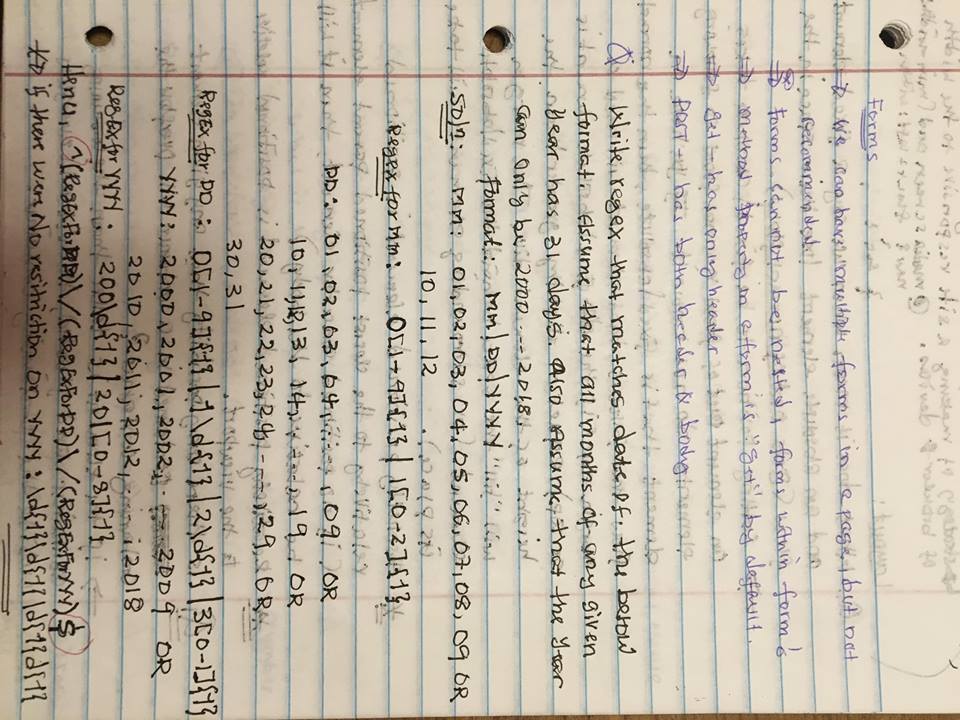 Forms
→ We can have multiple forms in a page, but not
recommended.
⇒ Forms cannot be nested, forms within form!
⇒ method property in a form is "get" by default.
⇒ get - has only header
⇒ POST - has both header & body.
Q Write regex that matches date of the below
format. Assume that all months of any given
Year has 31 days. Also Assume that the Year
can only be 2000 --- 2018.
Format: MM|DD|YYYY
Soln: MM: 01, 02, 03, 04, 05, 06, 07, 08, 09 OR
10, 11, 12
RegEx for MM: 0[1-9]{1} | 1[0-2]{1}
DD: 01, 02, 03, 04, ..., 09. OR
10, 11, 12, 13, 14, ---, 19. OR
20, 21, 22, 23, 24, ---, 29, OR
30, 31
RegEx for DD: 0[1-9]{1} | 1\d{1} | 2\d{1} | 3[0-1]{1}
YYYY: 2000, 2001, 2002, --- 2009 OR
2010, 2011, 2012, ... 2018
RegEx for YYYY: 200\d{1} | 201[0-8]{1}
Henu, ^(RegExFor)\/(RegExForDD)\/(RegExForYYY)$
⇒ if there were No resitriction on YYYY: \d{1}\d{1}\d{1}d{1}